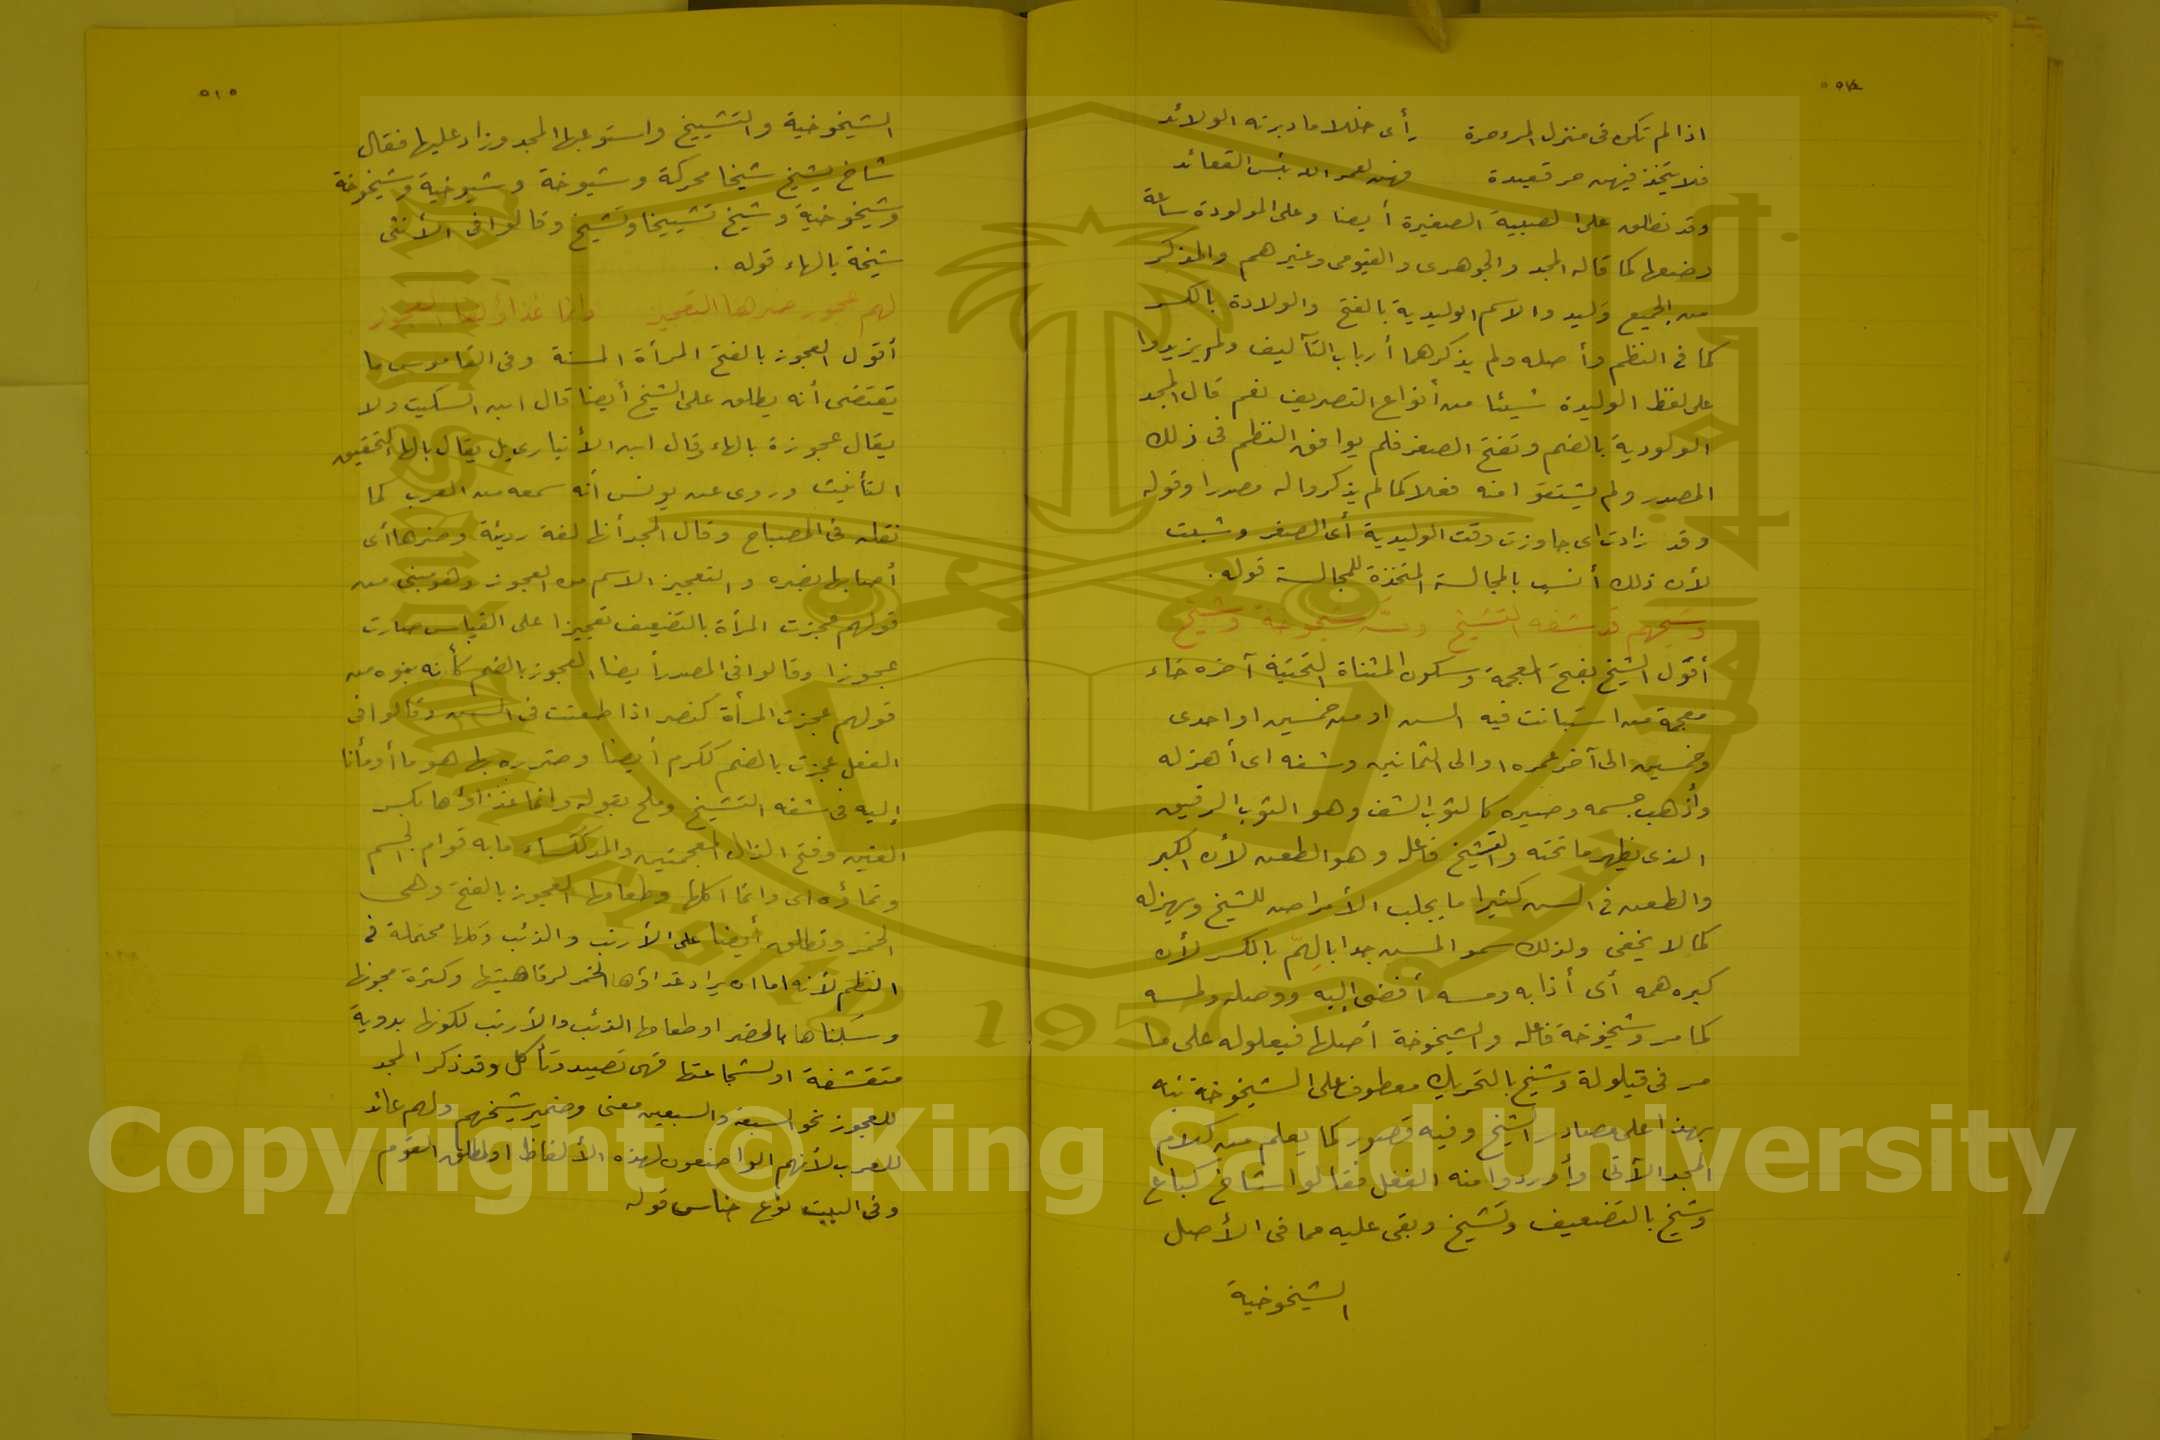 ٥١٤
اذا لم تكن فى منزل المرء حرة رأى خللا ما دبرته الولائد
فلا يتخذ فيهن حر قعيدة فهن لعمر الله بئس القعائد
وقد تطلق على الصبية الصغيرة أيضا وعلى المولودة ساعة
وضعها كما قاله المجد والجوهرى والفيومى وغيرهم والمذكر
من الجميع وليد والاسم الوليدية بالفتح والولادة بالكسر
كما فى النظم وأصله ولم يذكرهما أرباب التآليف ولم يزيدوا
على لفظ الوليدة شيئا من أنواع التصريف نعم قال المجد
الولودية بالضم وتفتح الصغر فلم يوافق النظم فى ذلك
المصدر ولم يشتقوا منه فعلا كما لم يذكروا له مصدرا وقوله
وقد زادت اى جاوزت وقت الوليدية أى الصغر وشبت
لأن ذلك أنسب بالمجالسة المتخذة للمجالسة قوله .
وشيخهم قد شفه التشيخ ومسه شيخوخة وشيخ
أقول الشيخ بفتح المعجمة وسكون المثناة التحتية آخره خاء
معجمة من استبانت فيه السن او من خمسين او احدى
وخمسين الى آخر عمره او الى الثمانين وشفه اى أهزله
وأذهب جسمه وصيره كالثوب الشف وهو الثوب الرقيق
الذى يظهر ما تحته والتشيخ فاعله وهو الطعن لأن الكبر
والطعن فى السن كثيرا ما يجلب الأمراض للشيخ ويهزله
كما لا يخفى ولذلك سموا المسن جدا بالهِمّ بالكسر لأن
كبره همه أى أذابه ومسه أفضى اليه ووصله ولمسه
كما مر وشيخوخة فاعله والشيخوخة أصلها فيعلولة على ما
مر فى قيلولة وشيخ بالتحريك معطوف على الشيخوخة نبه
بهذا على مصادر الشيخ وفيه قصور كما يعلم من كلام
المجد الآتى وأوردوا منه الفعل فقالوا شاخ كباع
وشيخ بالتضعيف وتشيخ وبقى عليه مما فى الأصل
الشيخوخية
٥١٥
الشيخوخية والتشييخ واستوعبها المجد وزاد عليها فقال
شاخ يشيخ شيخا محركة وشيوخة وشيوخية وشيخوخة
وشيخوخية وشيخ تشييخا وتشيخ وقالوا فى الأنثى
شيخة بالهاء قوله .
لهم عجوز ضرها التعجيز وانما غذاؤها العجوز
أقول العجوز بالفتح المرأة المسنة وفى القاموس ما
يقتضى أنه يطلق على الشيخ أيضا قال ابن السكيت ولا
يقال عجوزة بالهاء وقال ابن الأنبارى بل يقال بالهاء لتحقيق
التأنيث وروى عن يونس أنه سمعه من العرب كما
نقله فى المصباح وقال المجد أنها لغة رديئة وضرها أى
أصابها بضره والتعجيز الاسم من العجوز وهو مبنى من
قولهم عجزت المرأة بالتضعيف تعجيزا على القياس صارت
عجوزا وقالوا فى المصدر أيضا العجوز بالضم كأنه بنوه من
قولهم عجزت المرأة كنصر اذا طعنت فى السن وقالوا فى
الفعل عجزت بالضم ككرم أيضا وضرره بها هو ما أومأنا
إليه فى شفه التشيخ وملح بقوله وانما غذاؤها بكسر
الغين وفتح الذال المعجمتين والمد ككساء ما به قوام الجسم
ونماؤه اى وانما اكلها وطعامها العجوز بالفتح وهى
الخمر وتطلق أيضا على الأرنب والذئب وكلها محتملة فى
النظم لأنه اما ان يراد غذاؤها الخمر لرفاهيتها وكثرة مجونها
وسكناها بالحضر او طعامها الذئب والأرنب لكونها بدوية
متقشفة او لشجاعتها فهى تصيد وتأكل وقد ذكر المجد
للعجوز نحو السبعة والسبعين معنى وضمير شيخهم ولهم عائد
للعرب لأنهم الواضعون لهذه الألفاظ او لمطلق القوم
وفى البيت نوع جناس قوله
Copyright © King Saud University
1957